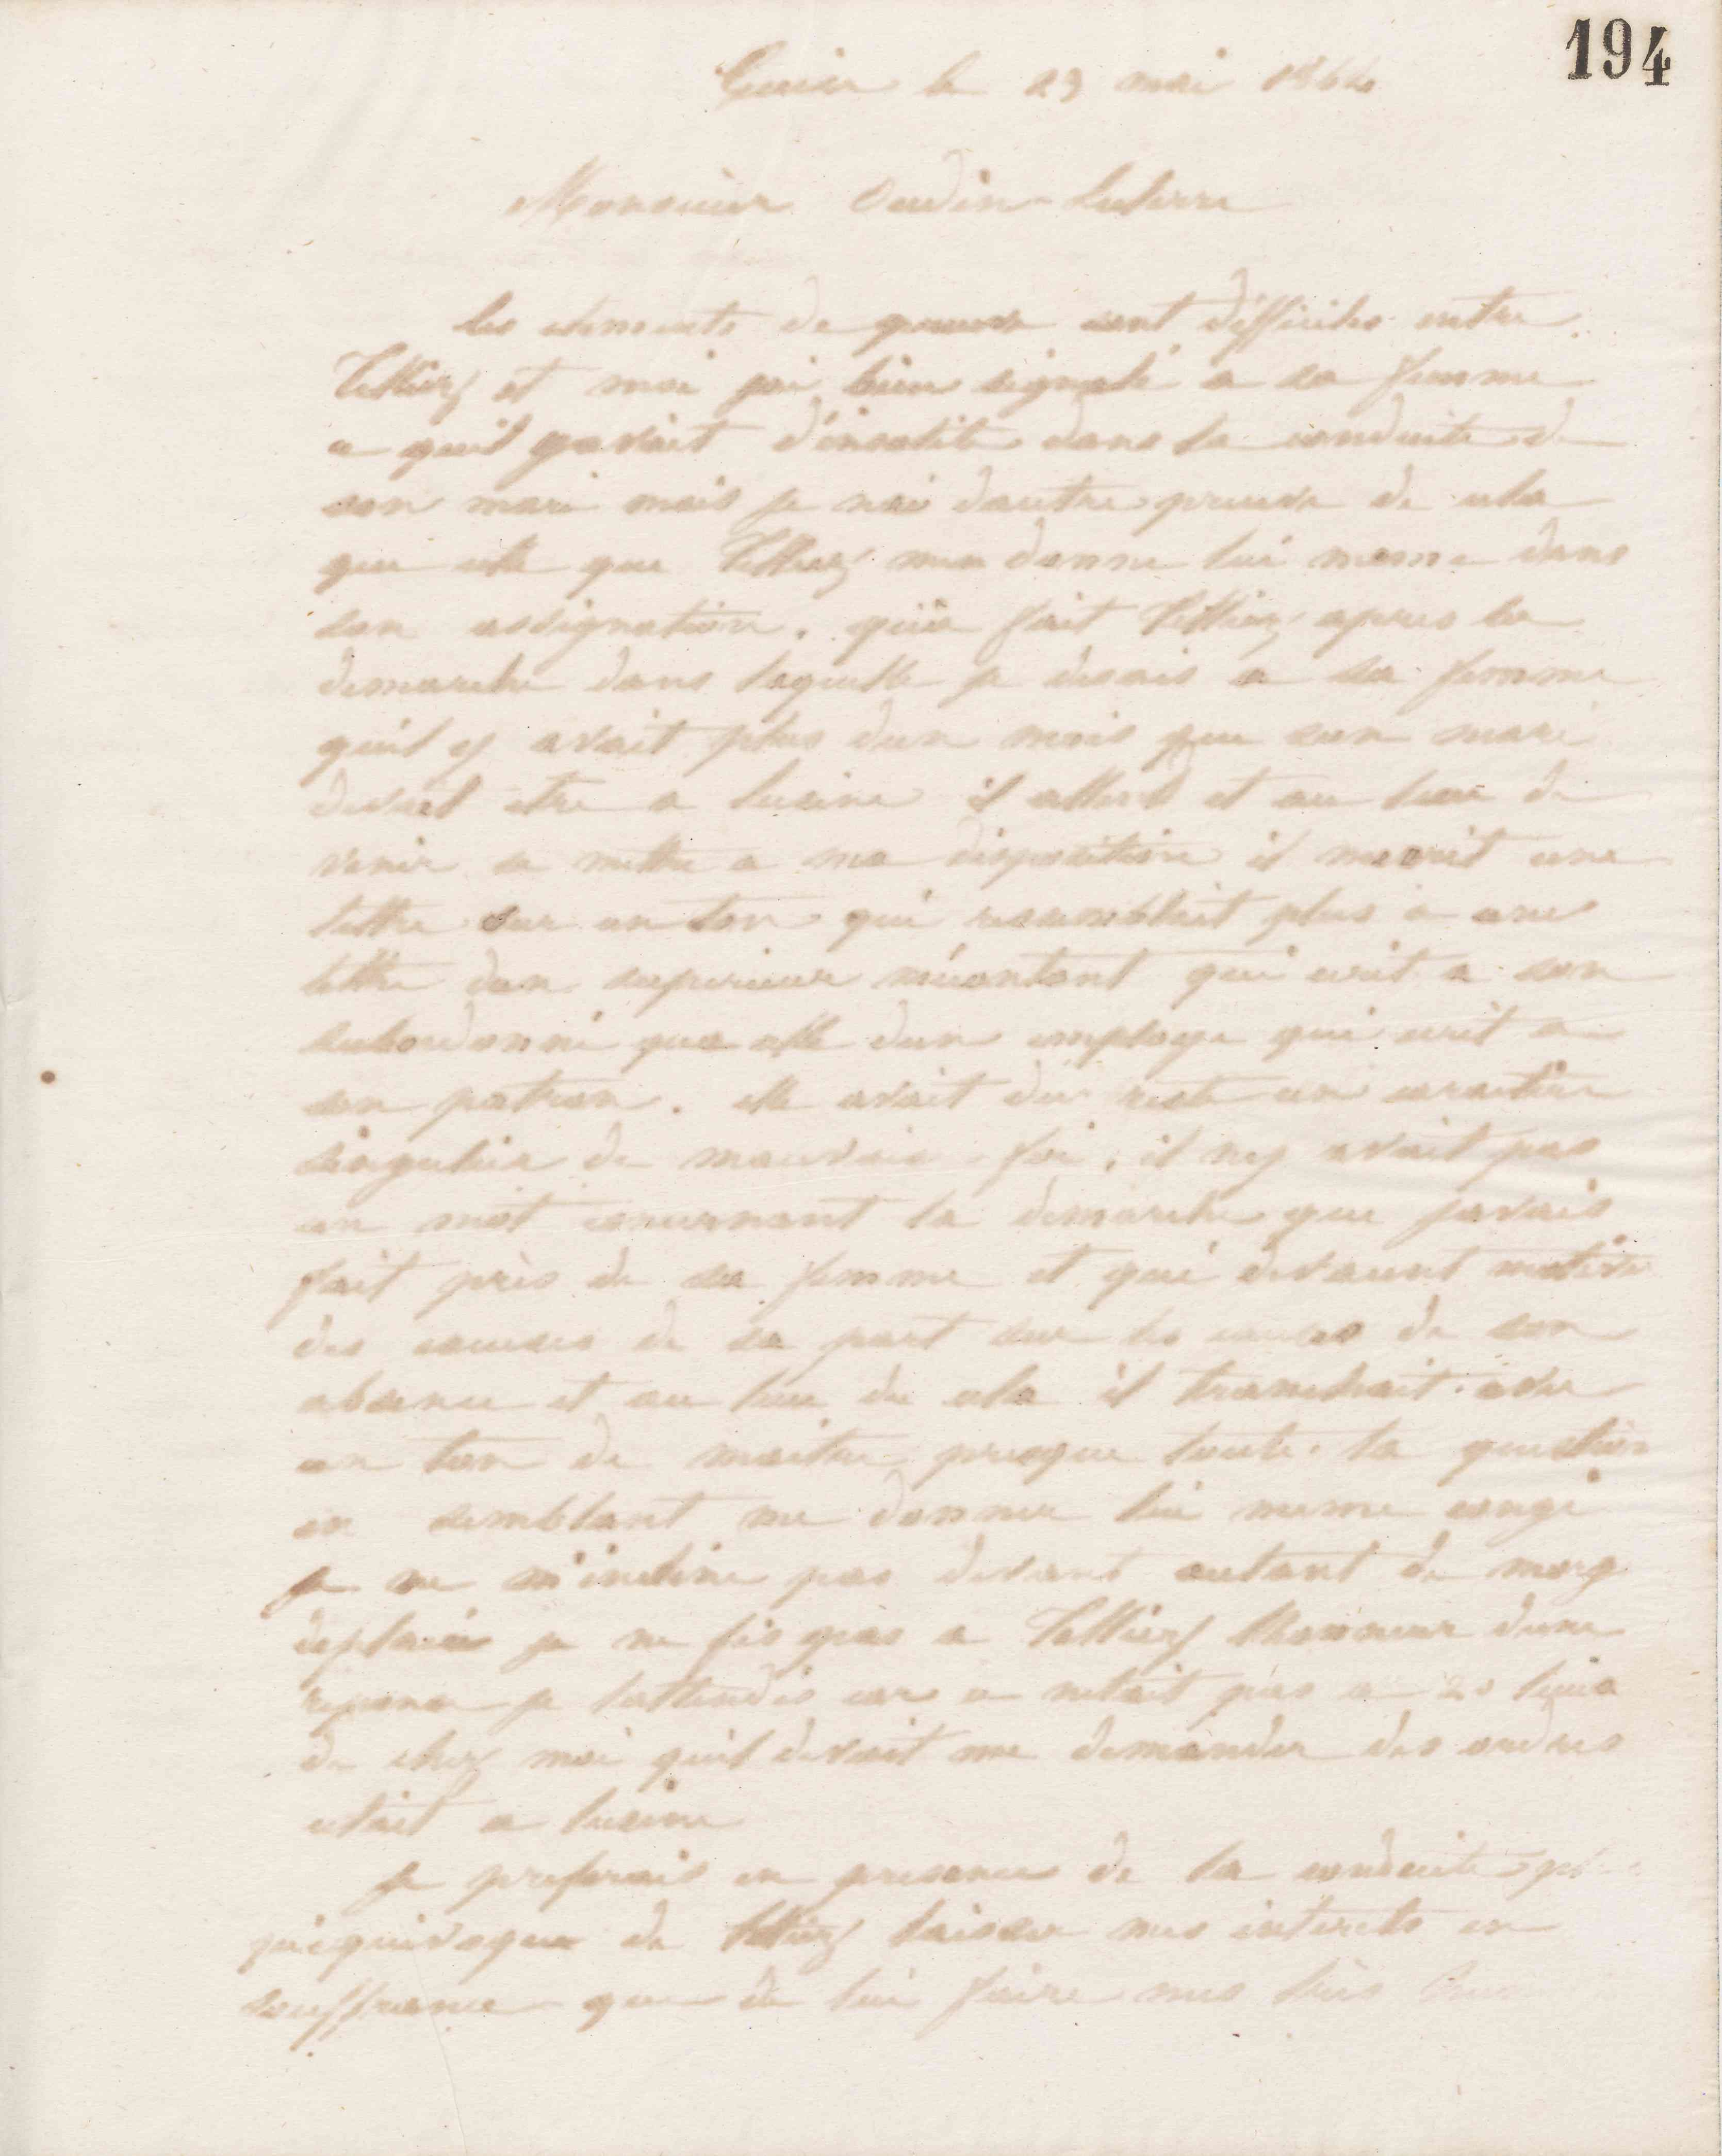 194
Guise le 23 mai 1864
Monsieur Oudin-Leclerre
les elements de preuve sont difficiles entre
Telliez et moi jai bien signale a sa femme
ce quil y avait d'insolite dans la conduite de
son mari mais je nai dautre preuve de cela
que celle que Telliez men donne lui meme dans
son assignation. qua fait Telliez apres la
demarche dans laquelle je disais a sa femme
quil y avait plus dun mois que son mari
devait etre a lusine il attend et au lieu de
venir se mettre a ma disposition il mecrit une
lettre sur un ton qui ressemblait plus a une
lettre dun superieur mécontent qui ecrit a son
subordonné qua celle dun employe qui ecrit a
son patron. elle avait du reste un caractère
singulier de mauvaise foi, il ny avait pas
un mot concernant la demarche que javais
fait près de sa femme et qui devaient motiver
des excuses de sa part sur les causes de son
absence et au lieu de cela il tranchait avec
un ton de maitre presque toute la question
en semblant me donner lui meme congé
je ne m'incline pas devant autant de morg
deplacée je ne fis pas a Telliez lhonneur dune
reponse je lattendis car ce netait pas a 20 lieues
de chez moi quil devait me demander des ordres
cetait a lusine
Je preferais en presence de la conduite
quequivoque de Telliez laisser mes interets en
souffrance que de lui faire mes